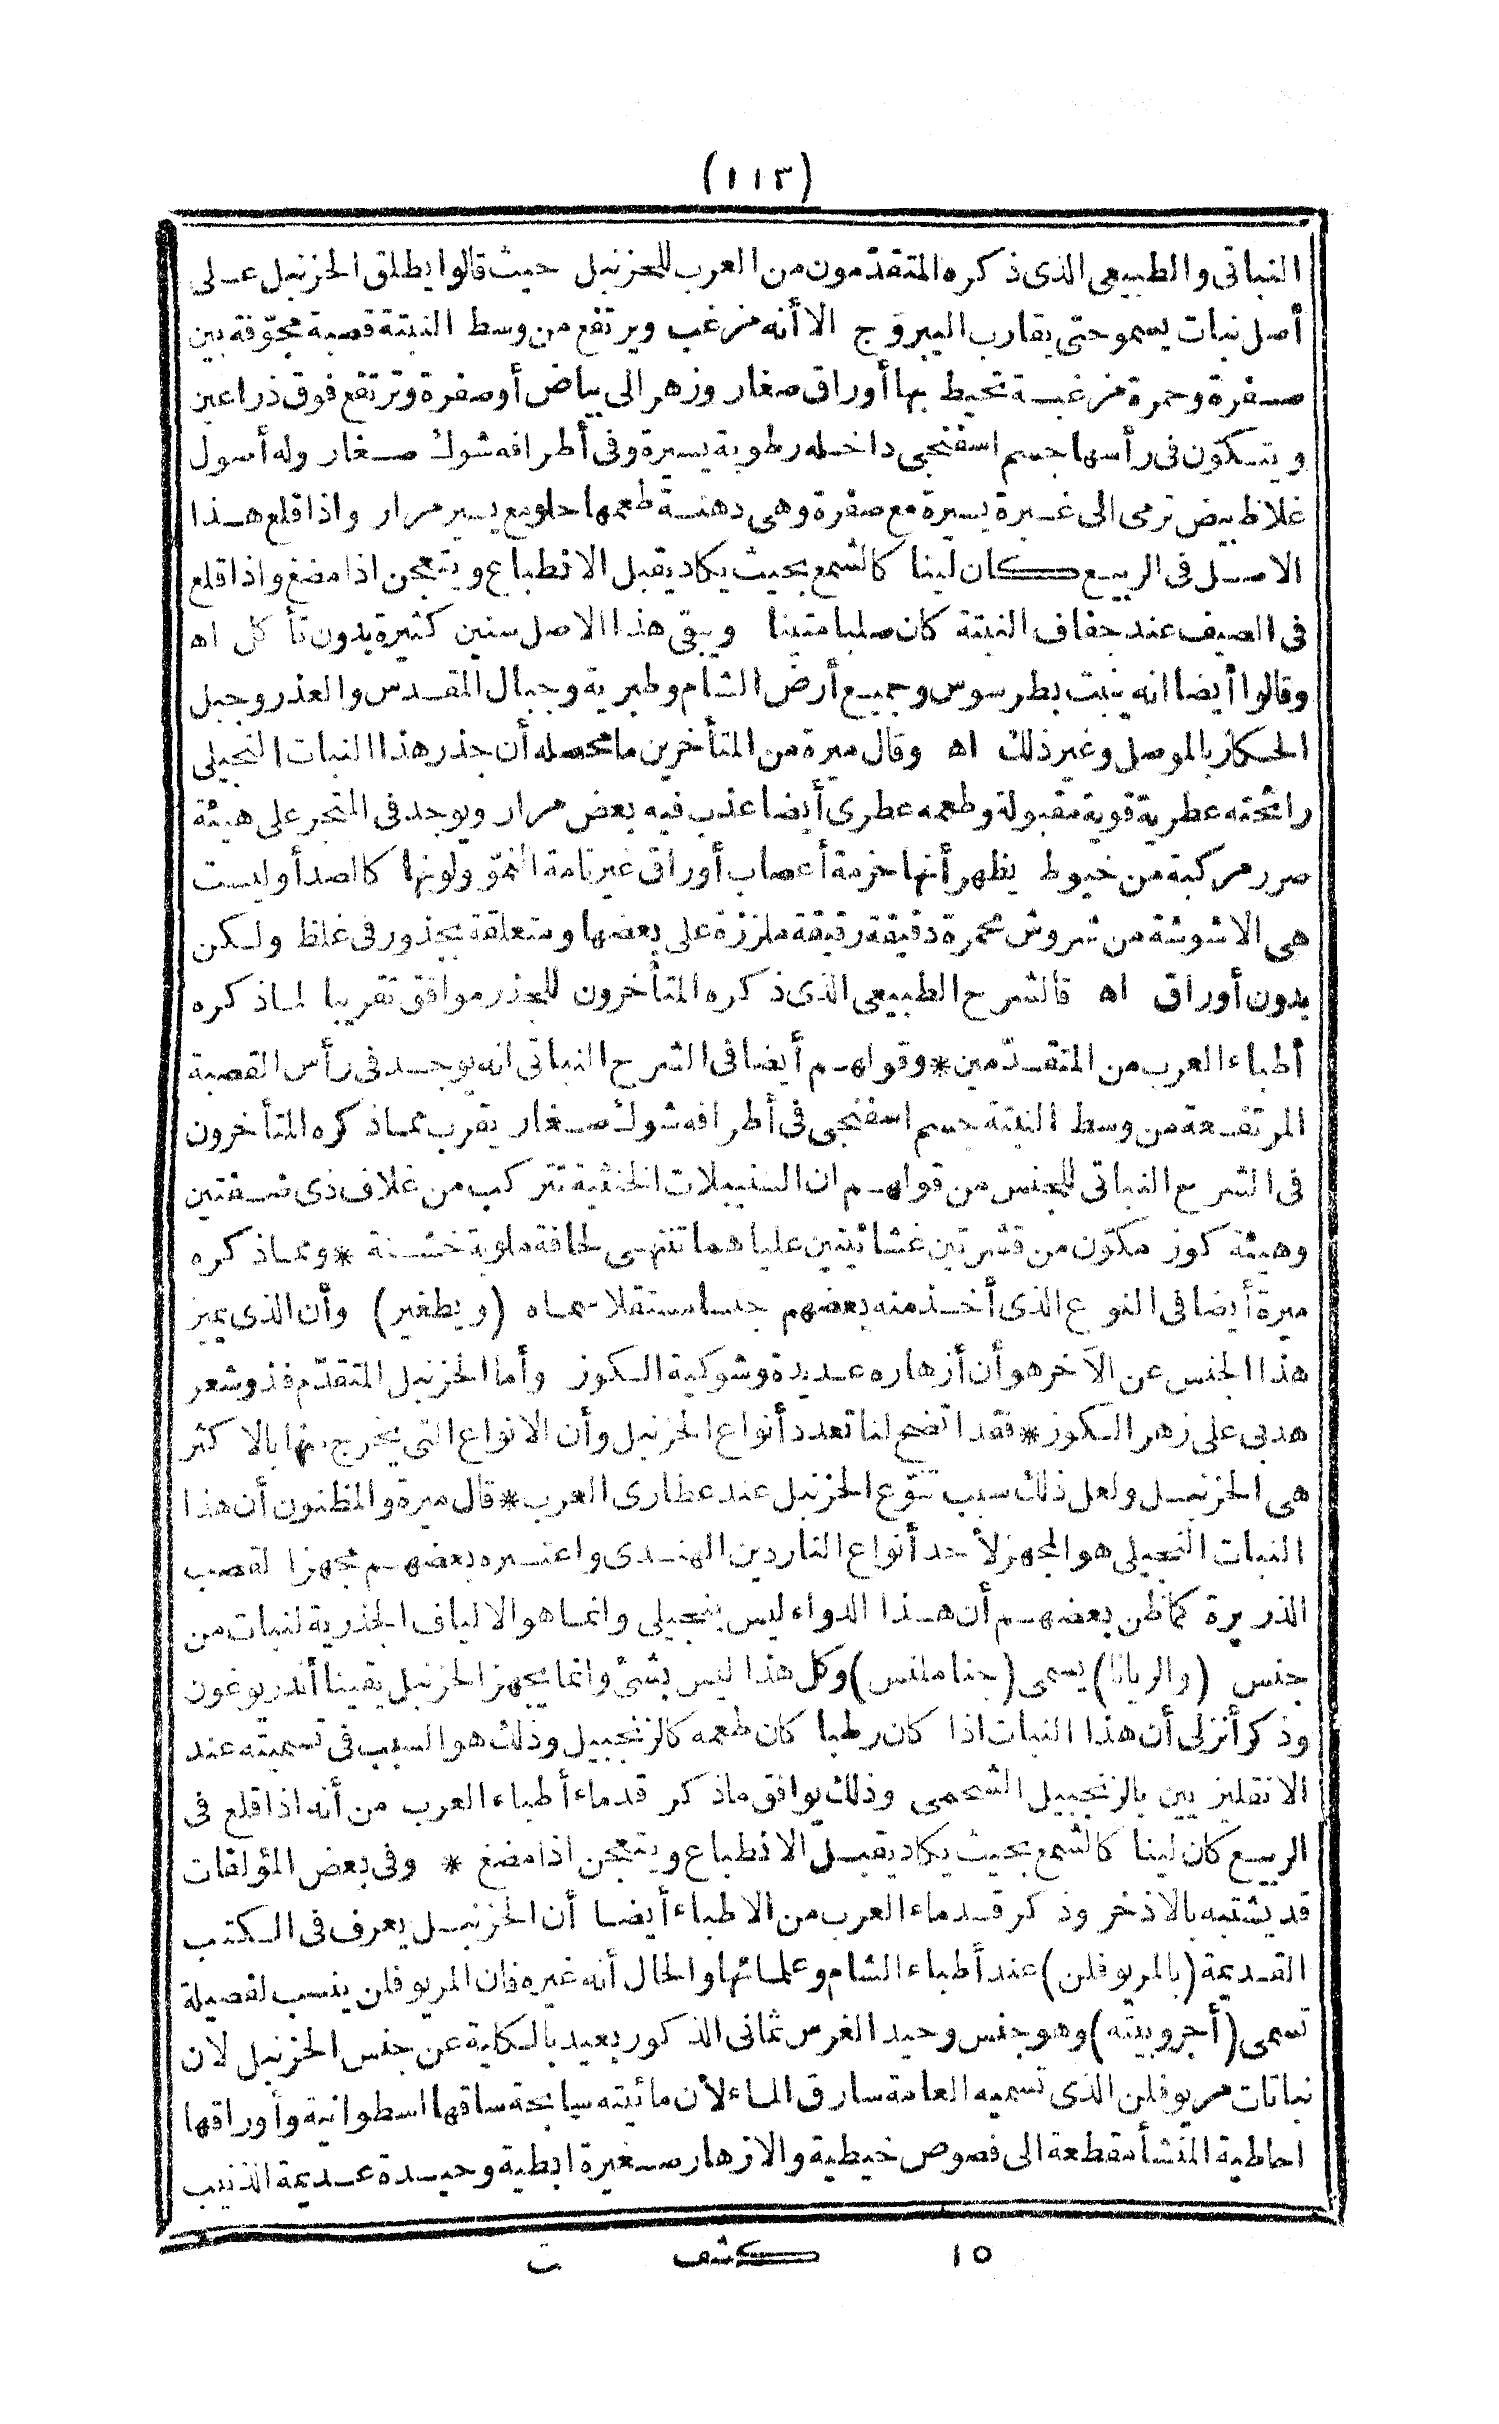 (١١٣)
النباتى والطبيعى الذى ذكره المتقدّمون من العرب للحزنبل حيث قالوا يطلق الحزنبل على
أصل نبات يسمو حتى يقارب اليبروج الا أنه مزغب ويرتفع من وسط النبتة قصبة مجوّفة بين
صفرة وحمرة مزغبة تحيط بها أوراق صغار وزهر الى بياض أو صفرة وترتفع فوق ذراعين
ويتكوّن فى رأسها جسم اسفنجى داخله رطوبة يسيرة وفى أطرافه شوك صغار وله أصول
غلاظ بيض ترمى الى غبرة يسيرة مع صفرة وهى دهنة طعمها حلو مع يسير مرار واذا قلع هذا
الاصل فى الربيع كان لينا كالشمع بحيث يكاد يقبل الانطباع ويتعجن اذا مضغ واذا قلع
فى الصيف عند جفاف النبتة كان صلبا متينا ويبقى هذا الاصل سنين كثيرة بدون تأكل اه
وقالوا أيضا انه ينبت بطرسوس وجميع أرض الشأم وطبرية وجبال المقدس والعذر وجبل
الحكار بالموصل وغير ذلك اه وقال ميرة من المتأخرين ما محصله أن جذر هذا النبات النجيلى
رائحته عطرية قوية مقبولة وطعمه عطرى أيضا عذب فيه بعض مرار ويوجد فى المتجر على هيئة
صرر مركبة من خيوط يظهر أنها حزمة أعصاب أوراق غير تامة النموّ ولونها كالصدأ وليست
هى الا شوشة من شروش محمرة دقيقة رقيقة ملززة على بعضها ومتعلقة بجذور فى غلظ ولكن
بدون أوراق اه فالشرح الطبيعى الذى ذكره المتأخرون للجذر موافق تقريبا لما ذكره
أطباء العرب من المتقدّمين * وقولهم أيضا فى الشرح النباتى انه يوجد فى رأس القصبة
المرتفعة من وسط النبتة جسم اسفنجى فى أطرافه شوك صغار يقرب مما ذكره المتأخرون
فى الشرح النباتى للجنس من قولهم ان السنيبلات الخنثية تتركب من غلاف ذى ضفتين
وهيئة كوز مكوّن من قشرتين غشائيتين علياهما تنتهى لحافة ملوية خشنة * ومما ذكره
ميرة أيضا فى النوع الذى أخذ منه بعضهم جنسا مستقلا سماه (ويطفير) وأن الذى يميز
هذا الجنس عن الآخر هو أن أزهاره عديدة وشوكية الكوز وأما الحزنبل المتقدّم فذو شعر
هدبى على زهر الكوز * فقد اتضح لنا تعدد أنواع الحزنبل وأن الانواع التى يخرج منها بالاكثر
هى الحزنبل ولعل ذلك سبب تنوّع الحزنبل عند عطارى العرب * قال ميرة والمظنون أن هذا
النبات النجيلى هو المجهز لأحد أنواع الناردين الهندى واعتبره بعضهم مجهزا لقصب
الذريرة كما ظن بعضهم أن هذا الدواء ليس بنجيلى وانما هو الالياف الجذرية لنبات من
جنس (والريانا) يسمى (جناملنس) وكل هذا ليس بشئ وانما يجهز الحزنبل يقينا أندربوغون
وذكر أنزلى أن هذا النبات اذا كان رطبا كان طعمه كالزنجبيل وذلك هو السبب فى تسميته عند
الانقليزيين بالزنجبيل الشحمى وذلك يوافق ما ذكر قدماء أطباء العرب من أنه اذا قلع فى
الربيع كان لينا كالشمع بحيث يكاد يقبل الانطباع ويتعجن اذا مضغ * وفى بعض المؤلفات
قد يشتبه بالاذخر وذكر قدماء العرب من الاطباء أيضا أن الحزنبل يعرف فى الكتب
القديمة (بالمريوفلن) عند أطباء الشام وعلمائها والحال أنه غيره فان المريوفلن ينسب لفصيلة
تسمى (أجروبيته) وهو جنس وحيد الغرس ثمانى الذكور بعيد بالكلية عن جنس الحزنبل لان
نباتات مريوفلن الذى تسميه العامة سارق الماء لأن مائيته سيابحة ساقها اسطوانية وأوراقها
احاطية المنشأ مقطعة الى فصوص خيطية والازهار صغيرة ابطية وحيدة عديمة الذنيب
١٥ كشف ت